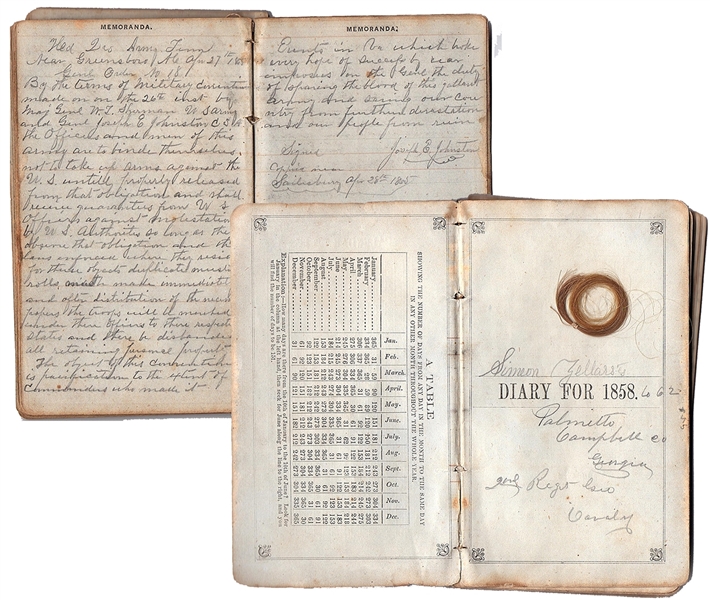 MEMORANDA.
Hed Qrs Army Tenn
Near Greensboro, NC Apr 27th 1865
Genl Order No 18
By the terms of Military Convention
made on the 26th inst by
Maj Genl W.T. Sherman U S army
and Genl Joseph E Johnston C S A
the Officers and men of this
Army are to binde themselves
not to take up arms against the
U. S. untill properly released
from that obligation and shall
receive guaranties from U S
Officers against molestation
by U. S. Authorities so long as they
observe that obligation and the
laws inforced where they reside
for these objects duplicate muster
rolls made immediately
and after distribution of the necessary
papers the troops will be marched
under there Officers to there respective
States and there be disbanded
all retaining personel property
The object of this Convention
is pacification to the extent of
Commanders who made it
MEMORANDA.
Events in Va which broke
every hope of success by war
imposes on its Genl the duty
of sparing the blood of this gallant
army and saving our Cou
ntry from further devastation
and our people from ruin
Signed Joseph E. Johnston
Salisbury Apr 28th 1865
TABLE
SHOWING THE NUMBER OF DAYS FROM ANY DAY IN THE MONTH TO THE SAME DAY
IN ANY OTHER MONTH THROUGHOUT THE WHOLE YEAR.
Jan. Feb. March. April. May. June. July. Aug. Sept. Oct. Nov. Dec.
January 365 31 59 90 120 151 181 212 243 273 304 334
February 334 365 28 59 89 120 150 181 212 242 273 303
March 306 337 365 31 61 92 122 153 184 214 245 275
April 275 306 334 365 30 61 91 122 153 183 214 244
May 245 276 304 335 365 31 61 92 123 153 184 214
June 214 245 273 304 334 365 30 61 92 122 153 183
July 184 215 243 274 304 335 365 31 62 92 123 153
August 153 184 212 243 273 304 334 365 31 61 92 122
September 122 153 181 212 242 273 303 334 365 30 61 91
October 92 123 151 182 212 243 273 304 335 365 31 61
November 61 92 120 151 181 212 242 273 304 334 365 30
December 31 62 90 121 151 182 212 243 274 304 335 365
Explanation:—How many days are there from the 16th of January to the 16th of June? Look for
January in the column at the left hand, then look for June along the line to the right, and you
will find the number of days to be 151.
Simeon Zellars's
DIARY FOR 1858. to 62
Palmetto
Campbell Co
Georgia
Regt Geo
Cavalry